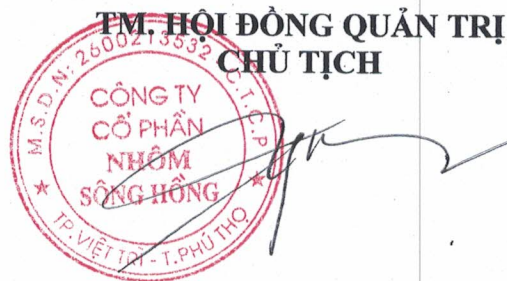 TM. HỘI ĐỒNG QUẢN TRỊ
CHỦ TỊCH
M.S.D.N: 2600213532 C.T.C.P
CÔNG TY
CỔ PHẦN
NHÔM
SÔNG HỒNG
TP. VIỆT TRÌ - T. PHÚ THỌ